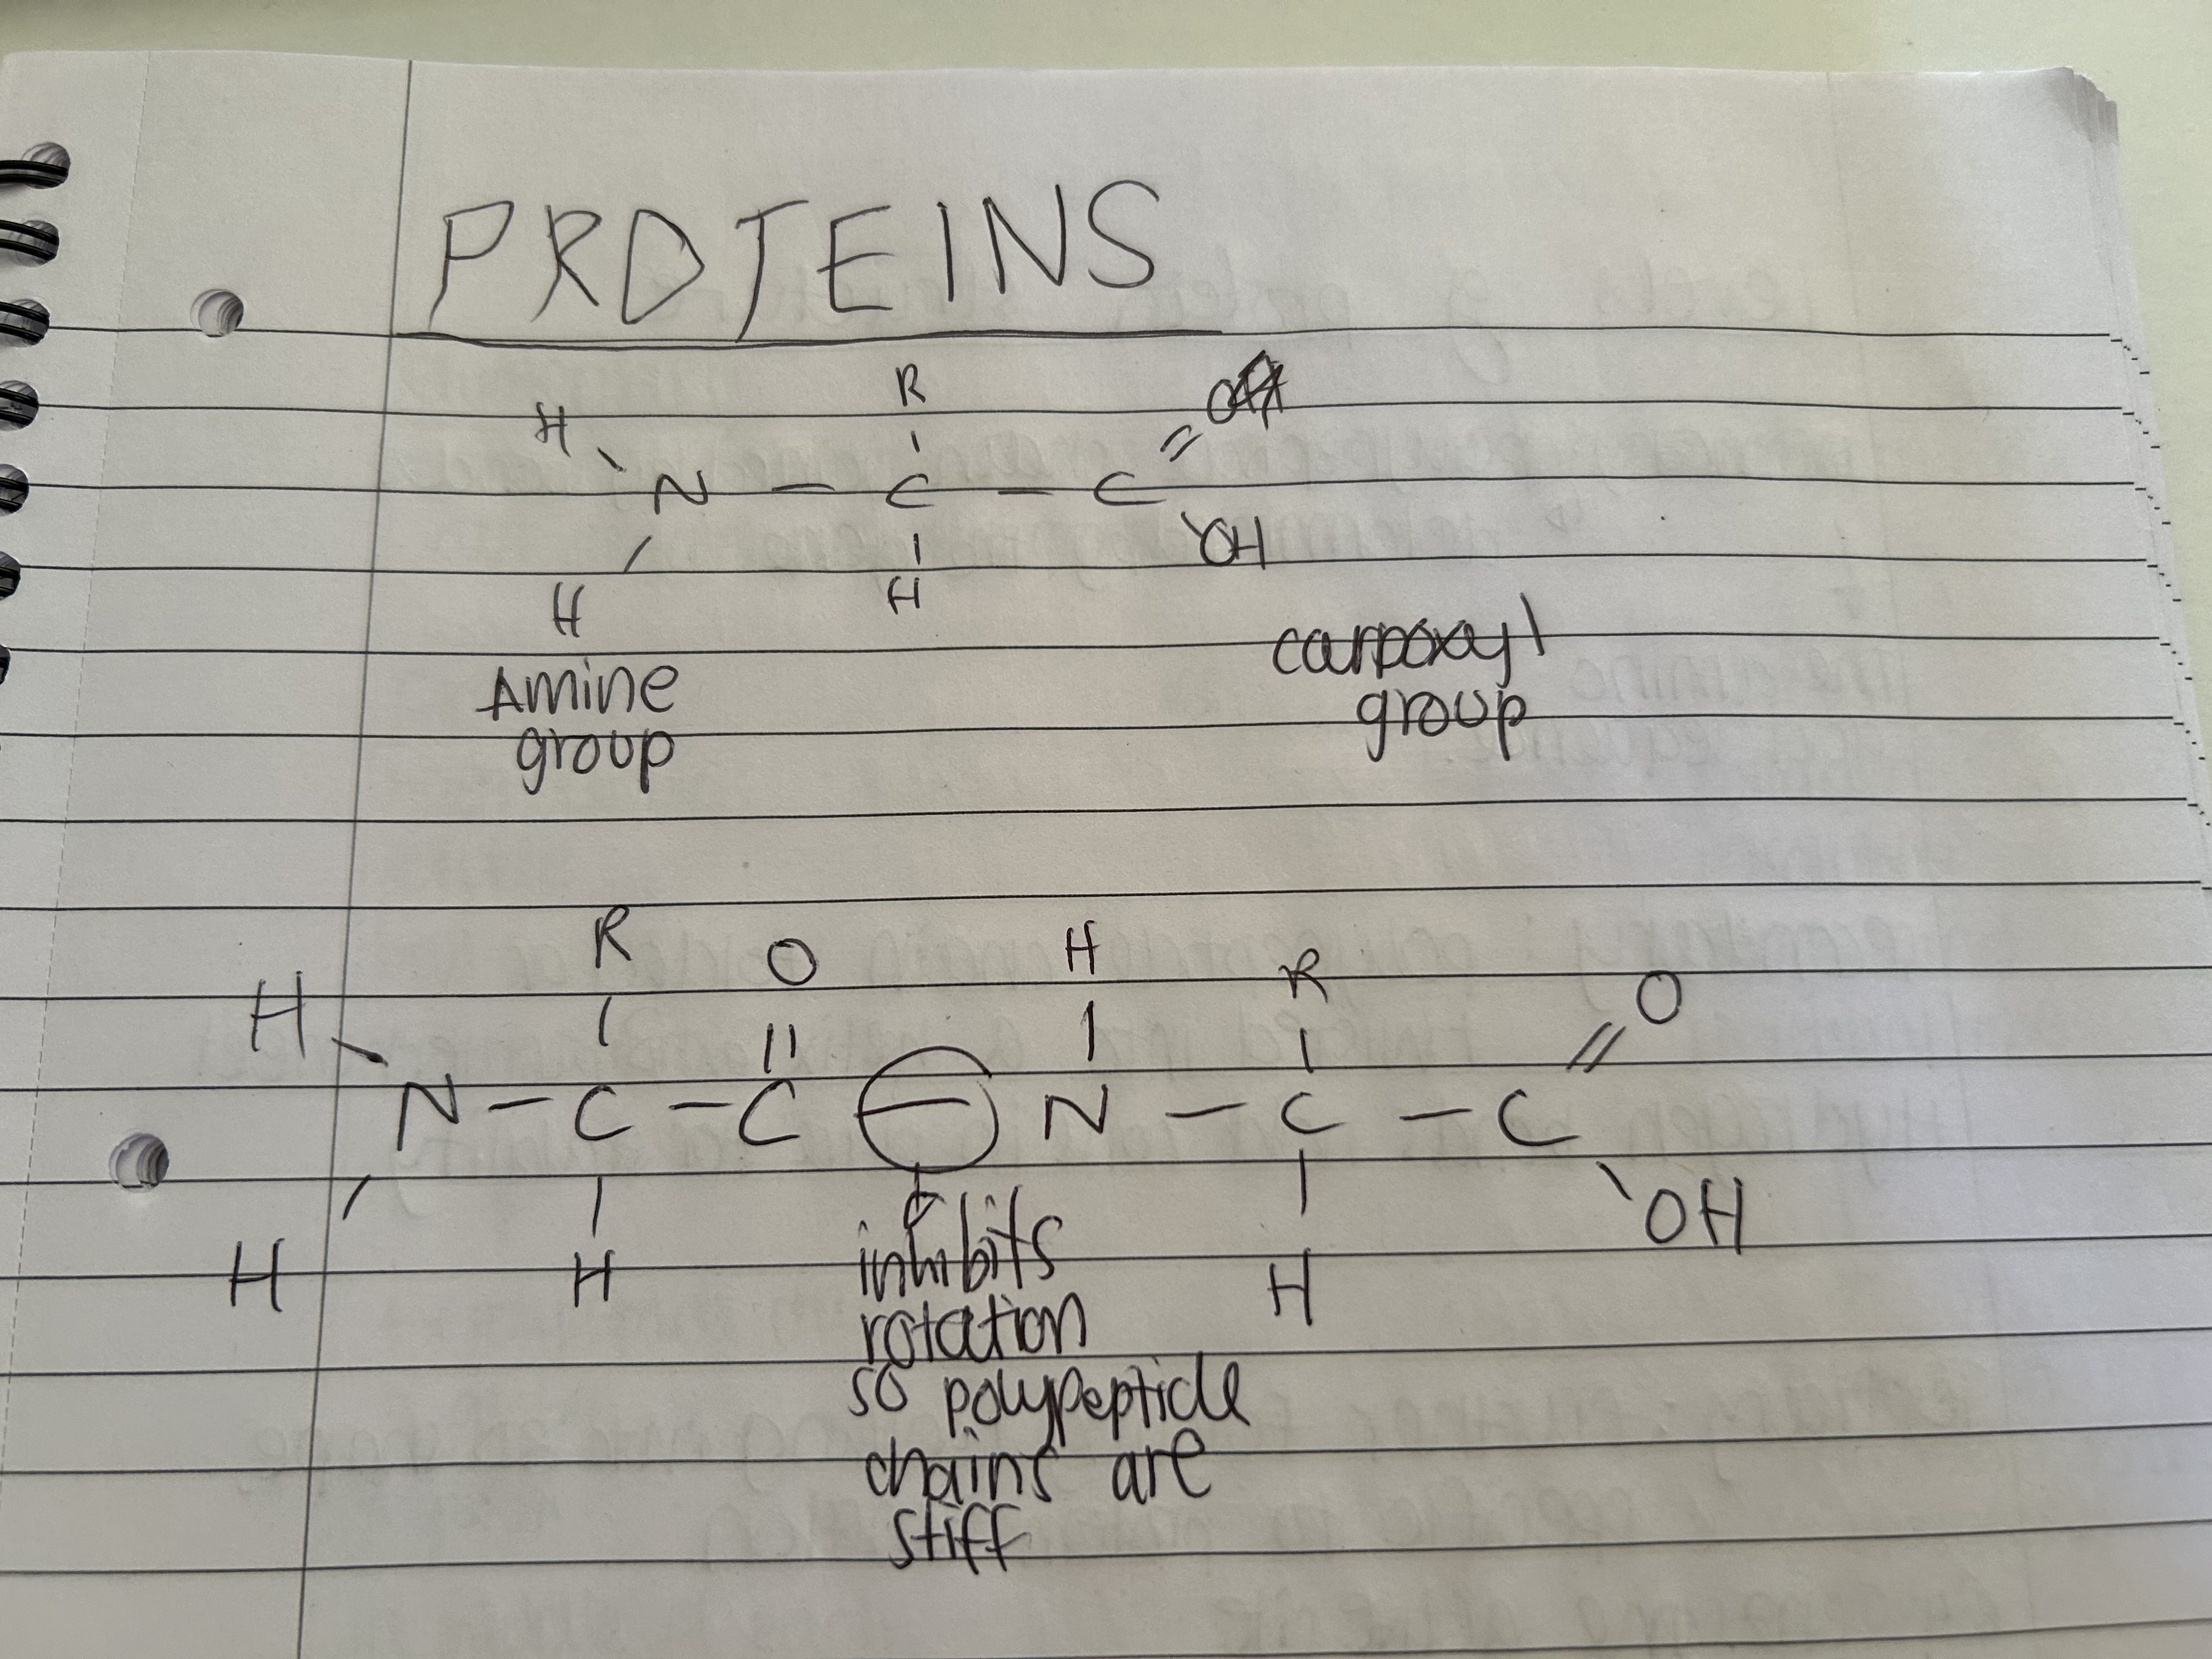 PROTEINS
R
H O
N - C - C
OH
H H
Amine carpoxyl
group group
R O H R O
H
N - C - C - N - C - C
OH
H H H
inhibits
rotation
so polypeptide
chains are
stiff